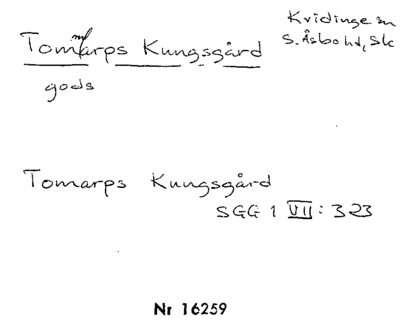 Tommarps Kungsgård
Kvidinge sn
S. Åsbo hd, Sk
gods
Tomarps Kungsgård
SGG 1 VII: 323
Nr 16259